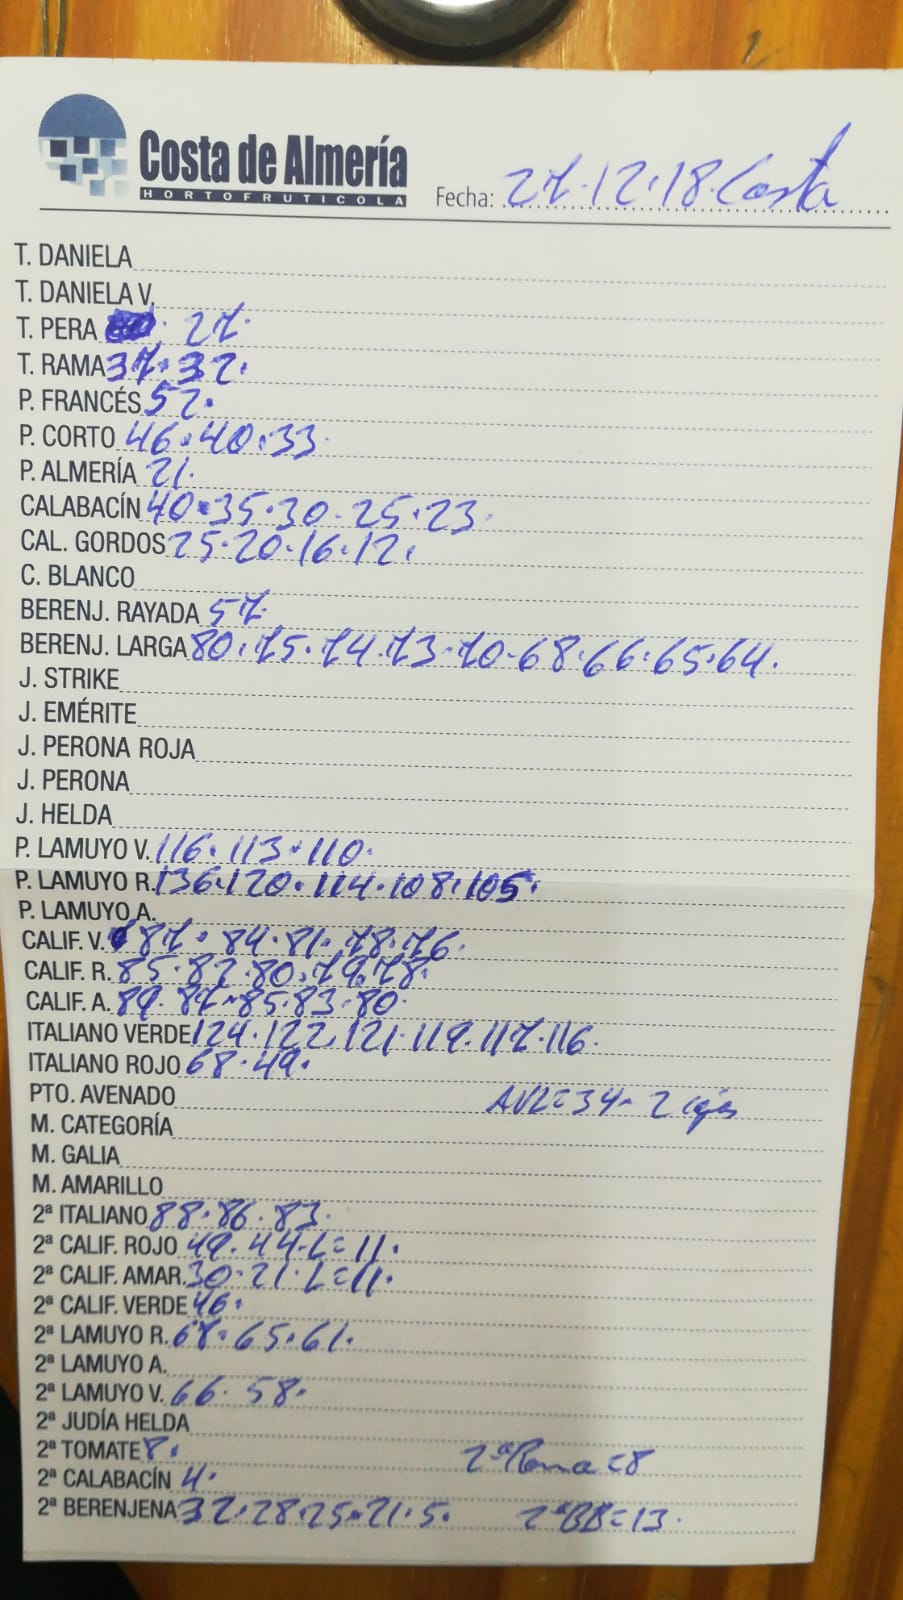 Costa de Almería
HORTOFRUTICOLA
Fecha: 27.12.18. Costa
T. DANIELA
T. DANIELA V.
T. PERA 27.
T. RAMA 37.32.
P. FRANCÉS 52.
P. CORTO 46.40.33.
P. ALMERÍA 21.
CALABACÍN 40.35.30.25.23.
CAL. GORDOS 25.20.16.12.
C. BLANCO
BERENJ. RAYADA 57.
BERENJ. LARGA 80.75.74.73.70.68.66.65.64.
J. STRIKE
J. EMÉRITE
J. PERONA ROJA
J. PERONA
J. HELDA
P. LAMUYO V. 116.113.110.
P. LAMUYO R. 136.120.114.108.105.
P. LAMUYO A.
CALIF. V. 87.84.81.78.76.
CALIF. R. 85.82.80.79.78.
CALIF. A. 89.87.85.83.80.
ITALIANO VERDE 124.122.121.119.117.116.
ITALIANO ROJO 68.49.
PTO. AVENADO =34- 2 cajas
M. CATEGORÍA
M. GALIA
M. AMARILLO
2ª ITALIANO 88.86.83.
2ª CALIF. ROJO 49.44-L=11.
2ª CALIF. AMAR. 30.21.L=11.
2ª CALIF. VERDE 46.
2ª LAMUYO R. 68.65.61.
2ª LAMUYO A.
2ª LAMUYO V. 66.58.
2ª JUDÍA HELDA
2ª TOMATE 8. 2ª =8
2ª CALABACÍN 4.
2ª BERENJENA 32.28.25.21.5. 2ªBB=13.